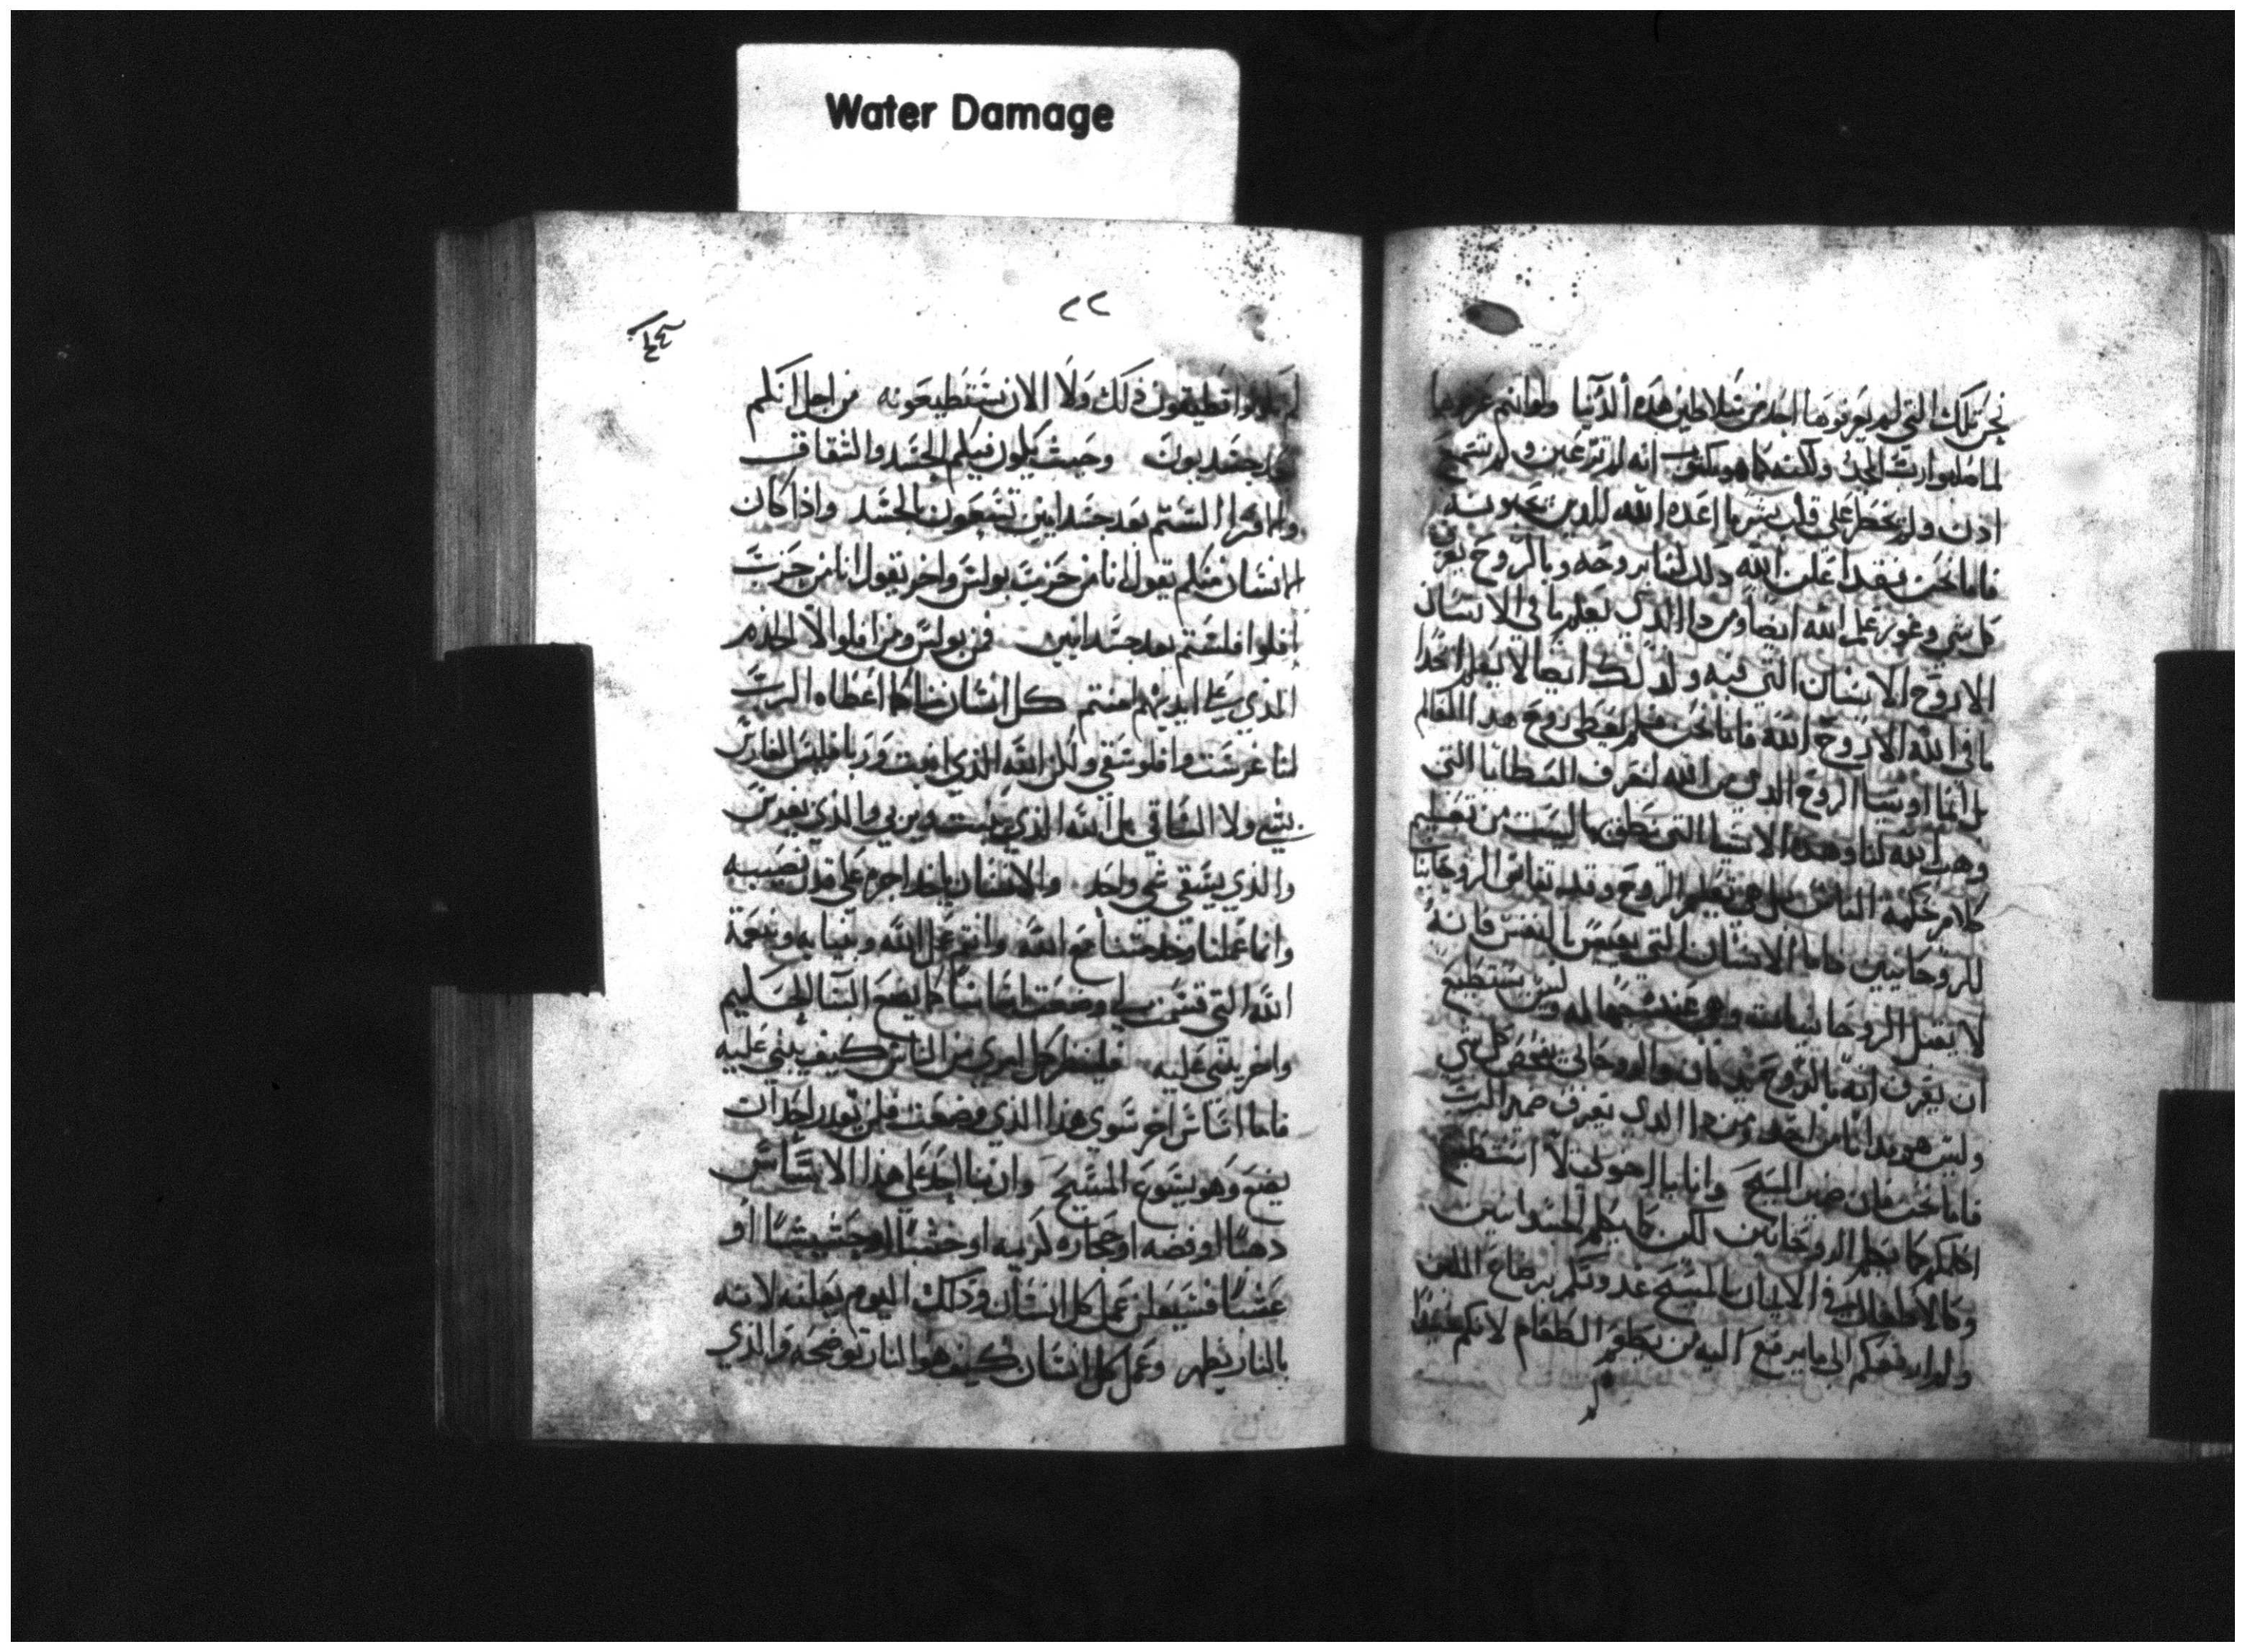 Water Damage
نحن تلك التي لم يعرفوها احد من سلاطين هذه الدنيا ولو انهم عرفوها
لما صلبوا رب المجد ولكنه كما هو مكتوب انه لم تر عين ولم تسمع
اذن ولم يخطر على قلب بشر ما اعده الله للذين يحبونه
فاما نحن فقد اعلن الله ذلك لنا بروحه وبالروح يفحص
كل شي وغور علم الله ايضا ومن ذا الذي يعلم ما في الانسان
الا روح الانسان التي فيه وكذلك ايضا لا يعلم احدا
ما في الله الا روح الله فاما نحن فلم نعط روح هذا العالم
بل انما اوتينا الروح الذي من الله لنعرف العطايا التي
وهب الله لنا وهذه الاشيا التي ننطق بها ليست من تعليم
كلام حكمة الناس بل من تعليم الروح وقد نقايس الروحانيات
للروحانيين فاما الانسان الذي بالنفس فانه
لا يقبل الروحانيات وهي عنده جهاله وليس يستطيع
ان يعرف انه بالروح يدان والروحاني يفحص كل شي
وليس هو يدان من احد ومن ذا الذي يعرف ضمير الرب
فاما نحن فان ضمير المسيح وانا يا اخوتي لا استطيع
اكلمكم كما يكلم الروحانيين لكن كما يكلم الجسدانيين
وكالاطفال في الايمان بالمسيح غدوتكم برضاع اللبن
ولم ابلغكم الى ما يرتفع اليه من الطعام لانكم
٢٢
لم تكونوا تطيقون ذلك ولا الان تستطيعونه من اجل انكم
بعد جسديون وحيث يكون فيكم الحسد والشقاق
والافترا الستم بعد جسدانيين تسعون بالجسد واذا كان
انسان منكم يقول انا من حزب بولس واخر يقول انا من حزب
افلوا فلستم بعد جسدانيين فمن بولس ومن افلوا الا الخدم
الذي على ايديهم امنتم كل انسان منا كما اعطاه الرب
انا غرست وافلو سقي ولكن الله الذي انبت وربا فليس الغارس
بشي ولا الساقي بل الله الذي ينبت ويربي والذي يغرس
والذي يسقي شي واحد والانسان ياخد اجره على قدر نصيبه
وانما عملنا وخدمتنا مع الله وانتم عمل الله وبنيانه وبنعمة
الله التي قسمت لي وضعت اساسا كما يضع البنا الحكيم
واخر يبني عليه فلينظر كل امري من الناس كيف يبني عليه
فاما اساس اخر سوي هذا الذي وضعت فلن يقدر احد ان
يضع وهو يسوع المسيح وان بنا احد على هذا الاساس
دهبا او فضه او حجاره كريمه او خشبا او حشيشا او
عشبا فسيعلن عمل كل انسان وذلك اليوم يعلنه لانه
بالنار يظهر وعمل كل انسان كيف هو النار توضحه والذي